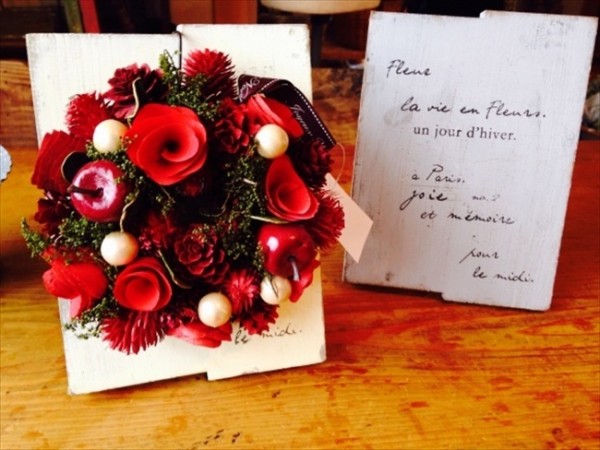 Fleur
la vie en Fleurs.
un jour d'hiver.
a Paris.
joie no.2
et mémoire
pour
le midi.
le midi.